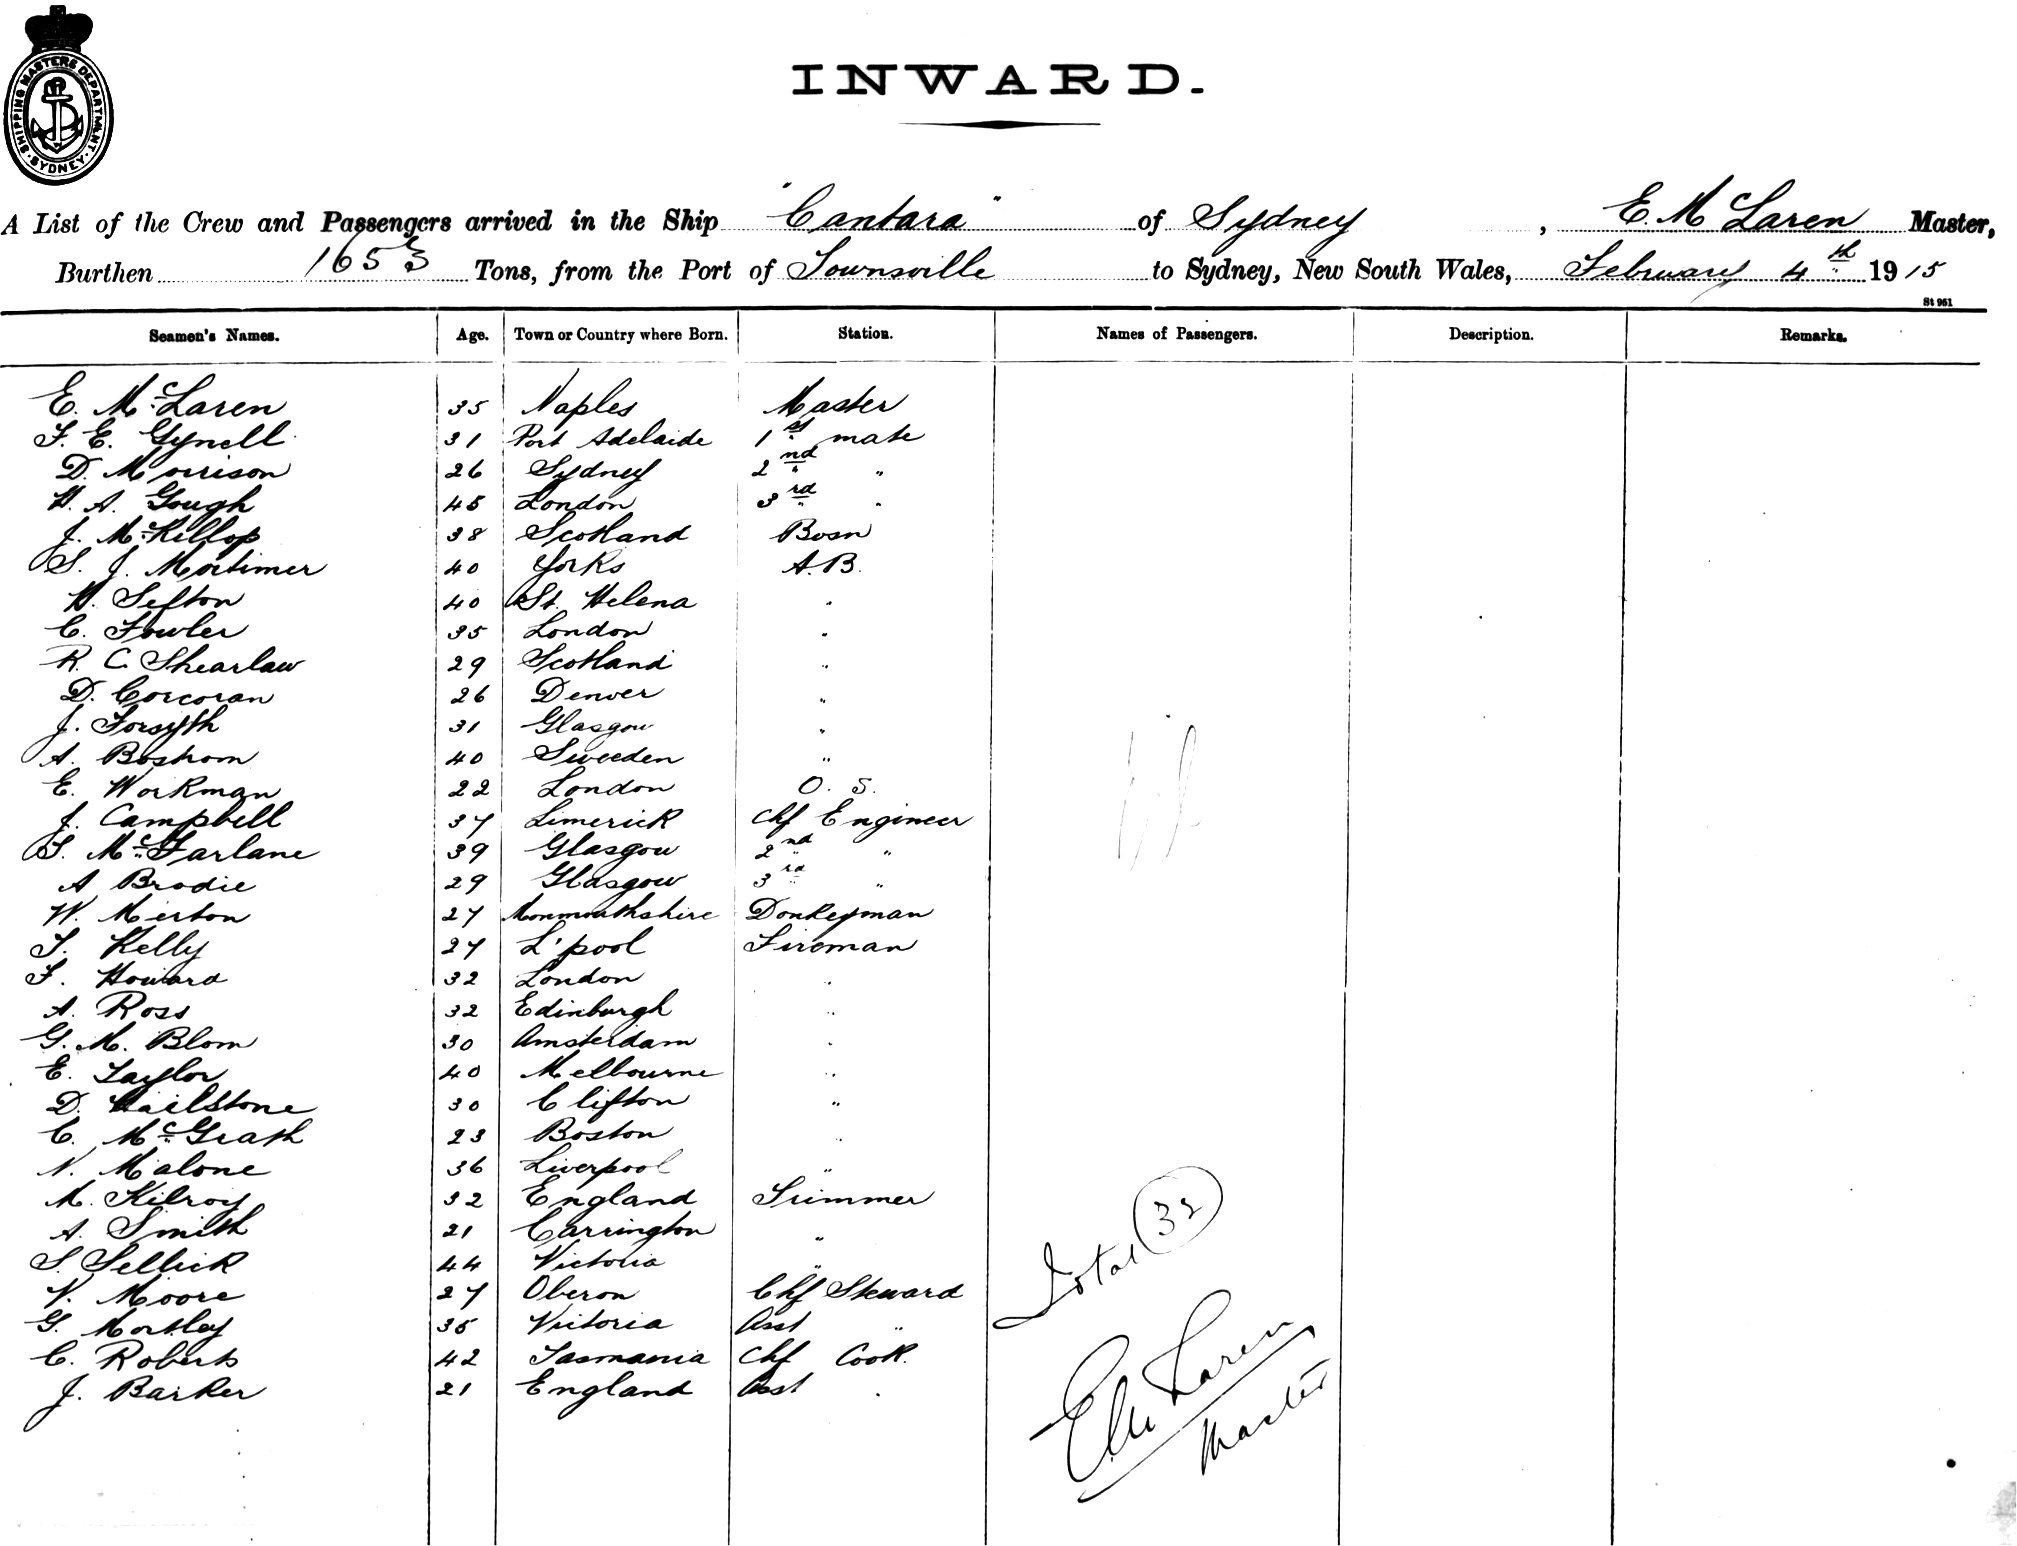 SHIPPING MASTERS DEPARTMENT. SYDNEY
INWARD.
A List of the Crew and Passengers arrived in the Ship "Cantara" of Sydney, E. Mc Laren Master,
Burthen 1653 Tons, from the Port of Townsville to Sydney, New South Wales, February 4th 1915
St 961
Seamen's Names. Age. Town or Country where Born. Station. Names of Passengers. Description. Remarks.
E. Mc Laren 35 Naples Master
F. E. Gynell 31 Port Adelaide 1st mate
D. Morrison 26 Sydney 2nd "
H. A. Gough 45 London 3rd "
J. McKillop 38 Scotland Bosn
S. J. Mortimer 40 Yorks A.B.
H. Sefton 40 St. Helena "
C. Fowler 35 London "
R. C Shearlaw 29 Scotland "
D. Corcoran 26 Denver "
J. Forsyth 31 Glasgow "
A. Bostrom 40 Sweeden "
E. Workman 22 London O. S.
J. Campbell 37 Limerick Chf Engineer
S. McFarlane 39 Glasgow 2nd "
A Brodie 29 Glasgow 3rd "
W. Merton 27 Monmouthshire Donkeyman
T. Kelly 27 L'pool Fireman
F. Howard 32 London "
A. Ross 32 Edinburgh "
G. M. Blom 30 Amsterdam "
E. Taylor 40 Melbourne "
D. Hailstone 30 Clifton "
C. McGrath 23 Boston "
N. Malone 36 Liverpool "
M. Kilroy 32 England Trimmer
A. Smith 21 Carrington "
S. Sellick 44 Victoria "
V. Moore 27 Oberon Chf Steward
G. Mortley 35 Victoria Asst "
C. Roberts 42 Tasmania Chf Cook.
J. Barker 21 England Asst "
Total 32
E Mc Laren
Master